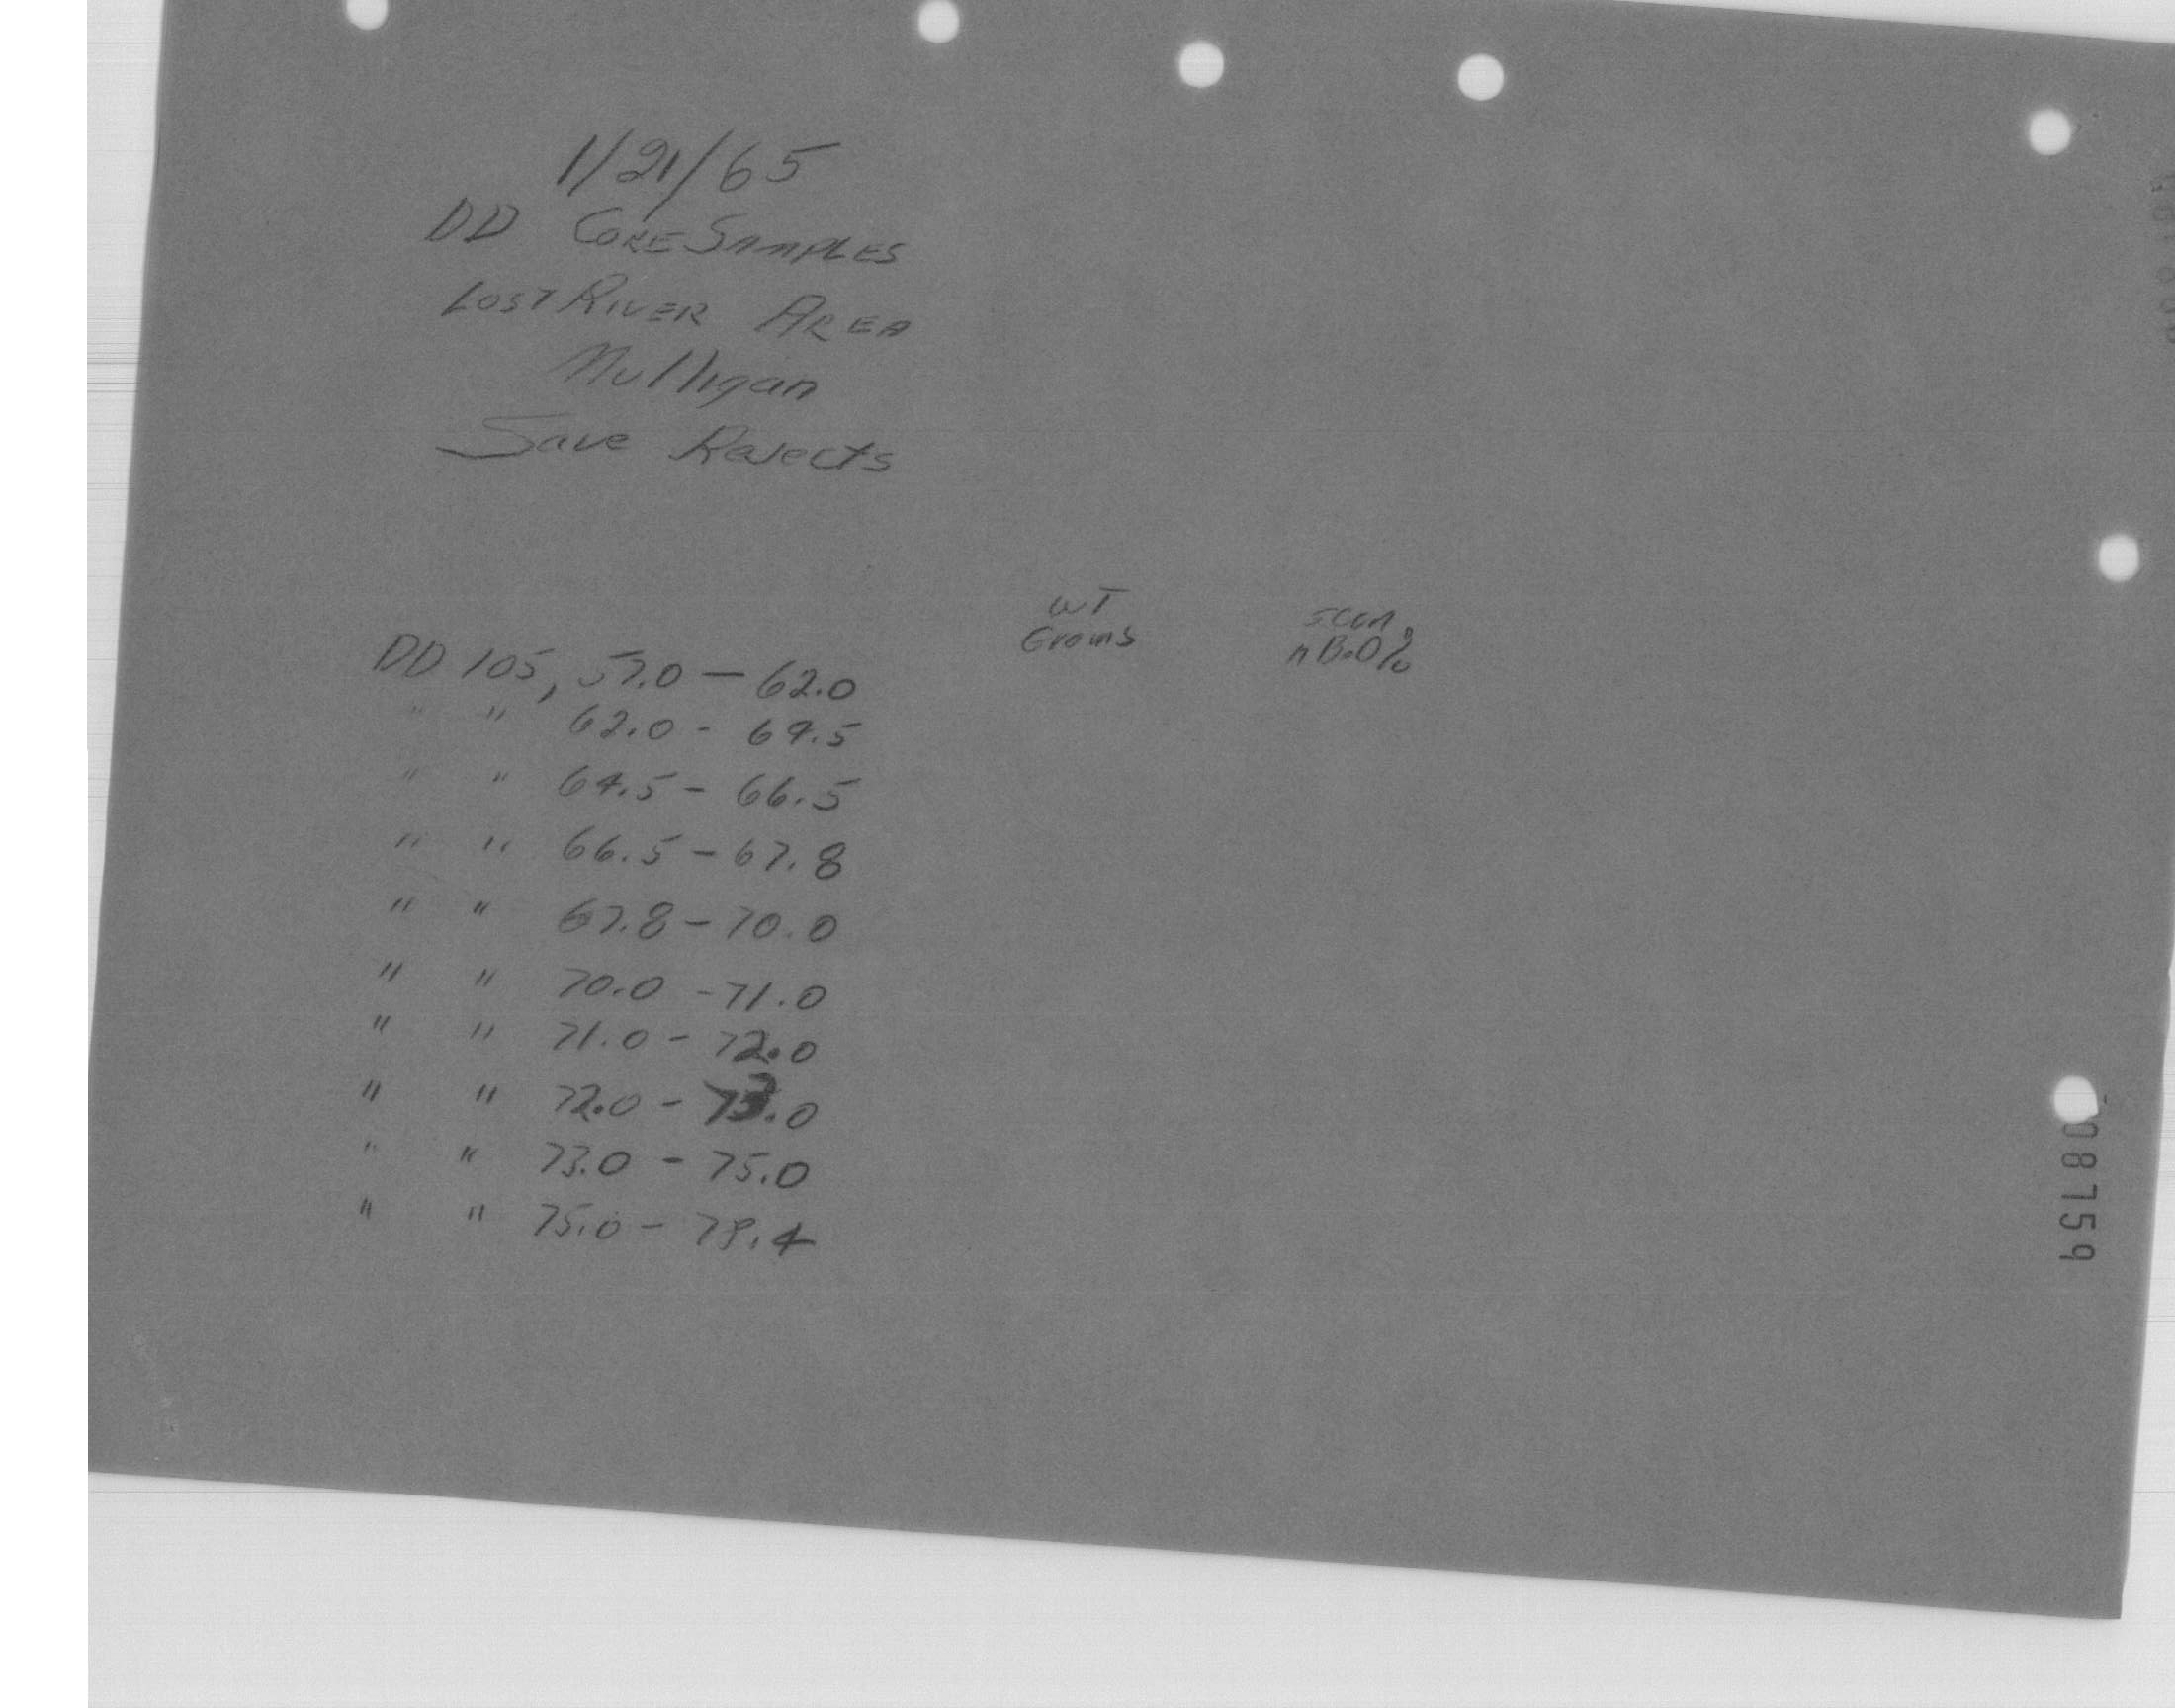 1/21/65
DD CORE SAMPLES
LOST RIVER AREA
Mulligan
Save Rejects
WT
Grams
scan,
nBeO%
DD 105, 57.0 — 62.0
" " 62.0 - 64.5
" " 64.5 - 66.5
" " 66.5 - 67.8
" " 67.8 - 70.0
" " 70.0 - 71.0
" " 71.0 - 72.0
" " 72.0 - 73.0
" " 73.0 - 75.0
" " 75.0 - 79.4
08759